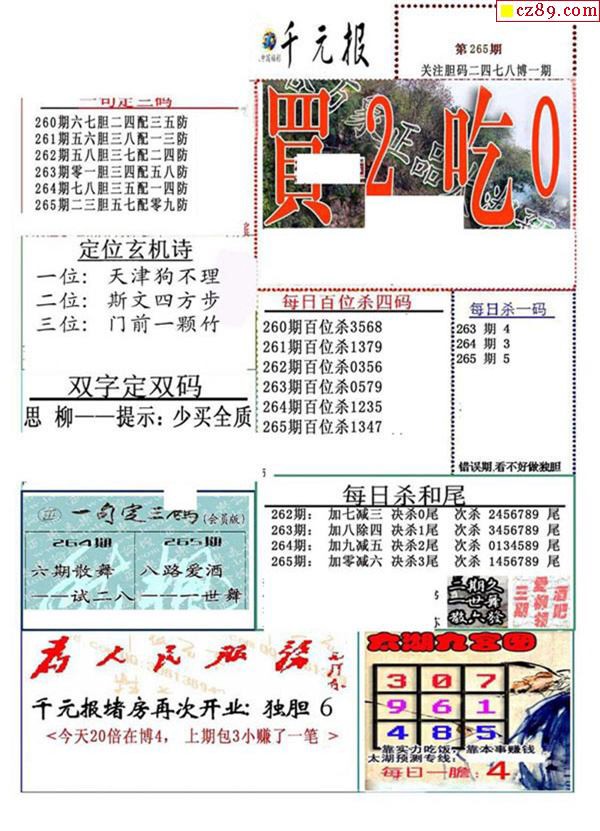 cz89.com
千元报
第265期
关注胆码二四七八博一期
一句定三码
260期六七胆二四配三五防
261期五六胆三八配一三防
262期五八胆三七配二四防
263期零一胆三四配五八防
264期七八胆三五配一四防
265期二三胆五七配零九防
買2吃0
定位玄机诗
一位: 天津狗不理
二位: 斯文四方步
三位: 门前一颗竹
每日百位杀四码
260期百位杀3568
261期百位杀1379
262期百位杀0356
263期百位杀0579
264期百位杀1235
265期百位杀1347
每日杀一码
263 期 4
264 期 3
265 期 5
错误期,看不好做独胆
双字定双码
思 柳——提示: 少买全质
一句定三码(会员版)
264期
六期散舞
——试二八
265期
八路爱酒
——一世舞
每日杀和尾
262期: 加七减三 决杀0尾 次杀 2456789 尾
263期: 加八除四 决杀1尾 次杀 3456789 尾
264期: 加九减五 决杀2尾 次杀 0134589 尾
265期: 加零减六 决杀3尾 次杀 1456789 尾
为人民服务
千元报堵房再次开业: 独胆 6
<今天20倍在博4, 上期包3小赚了一笔 >
太湖九宫图
3 0 7
9 6 1
4 8 5
靠实力吃饭, 靠本事赚钱
太湖预测专线:
每日一胆: 4